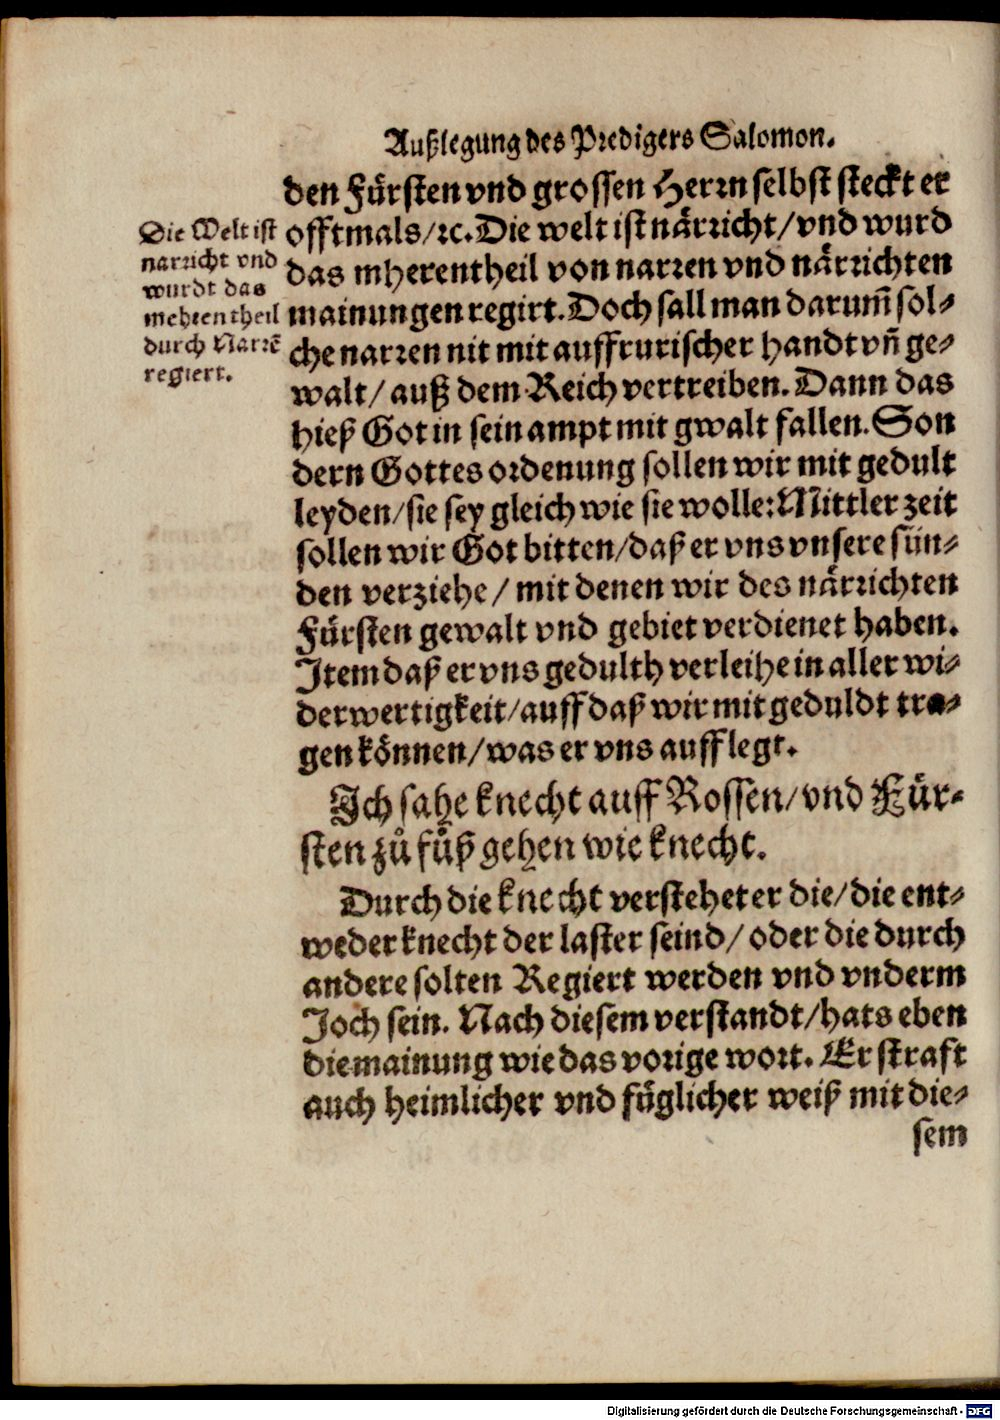 Außlegung des Predigers Salomon.
den Fürsten vnd grossen Herrn selbst steckt er
offtmals/ꝛc. Die welt ist närricht/vnd wurd
das mherentheil von narren vnd närrichten
mainungen regirt. Doch sall man darum̃ sol⸗
che narren nit mit auffrurischer handt vñ ge⸗
walt/ auß dem Reich vertreiben. Dann das
hieß Got in sein ampt mit gwalt fallen. Son
dern Gottes ordenung sollen wir mit gedult
leyden/sie sey gleich wie sie wolle: Mittler zeit
sollen wir Got bitten/daß er vns vnsere sün⸗
den verziehe/ mit denen wir des närrichten
Fürsten gewalt vnd gebiet verdienet haben.
Item daß er vns gedulth verleihe in aller wi⸗
derwertigkeit/auff daß wir mit geduldt tra⸗
gen können/was er vns aufflegt.
Die Welt ist
narricht vnd
wurdt das
mehrentheil
durch Narrẽ
regiert.
Ich sahe knecht auff Rossen/vnd Für⸗
sten zů fůß gehen wie knecht.
Durch die knecht verstehet er die/die ent⸗
weder knecht der laster seind/ oder die durch
andere solten Regiert werden vnd vnderm
Joch sein. Nach diesem verstandt/hats eben
die mainung wie das vorige wort. Er straft
auch heimlicher vnd füglicher weiß mit die⸗
sem
Digitalisierung gefördert durch die Deutsche Forschungsgemeinschaft - DFG